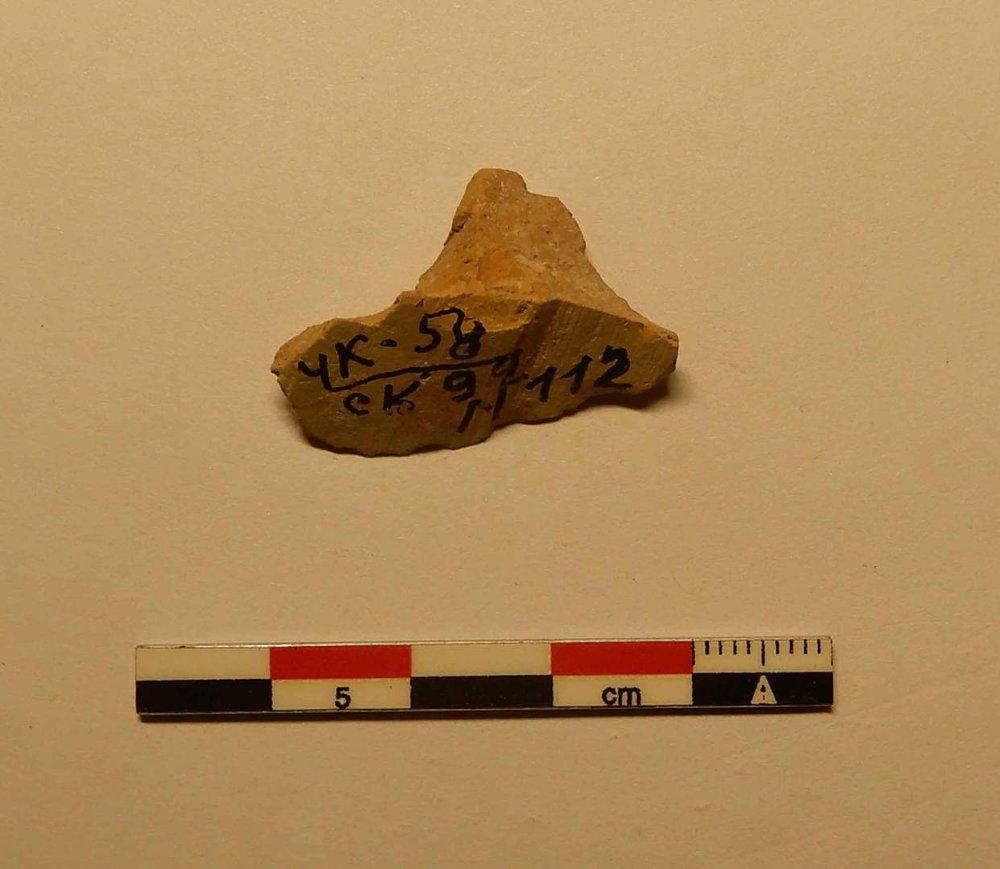 ЧК·58
СК 9
112
5 cm